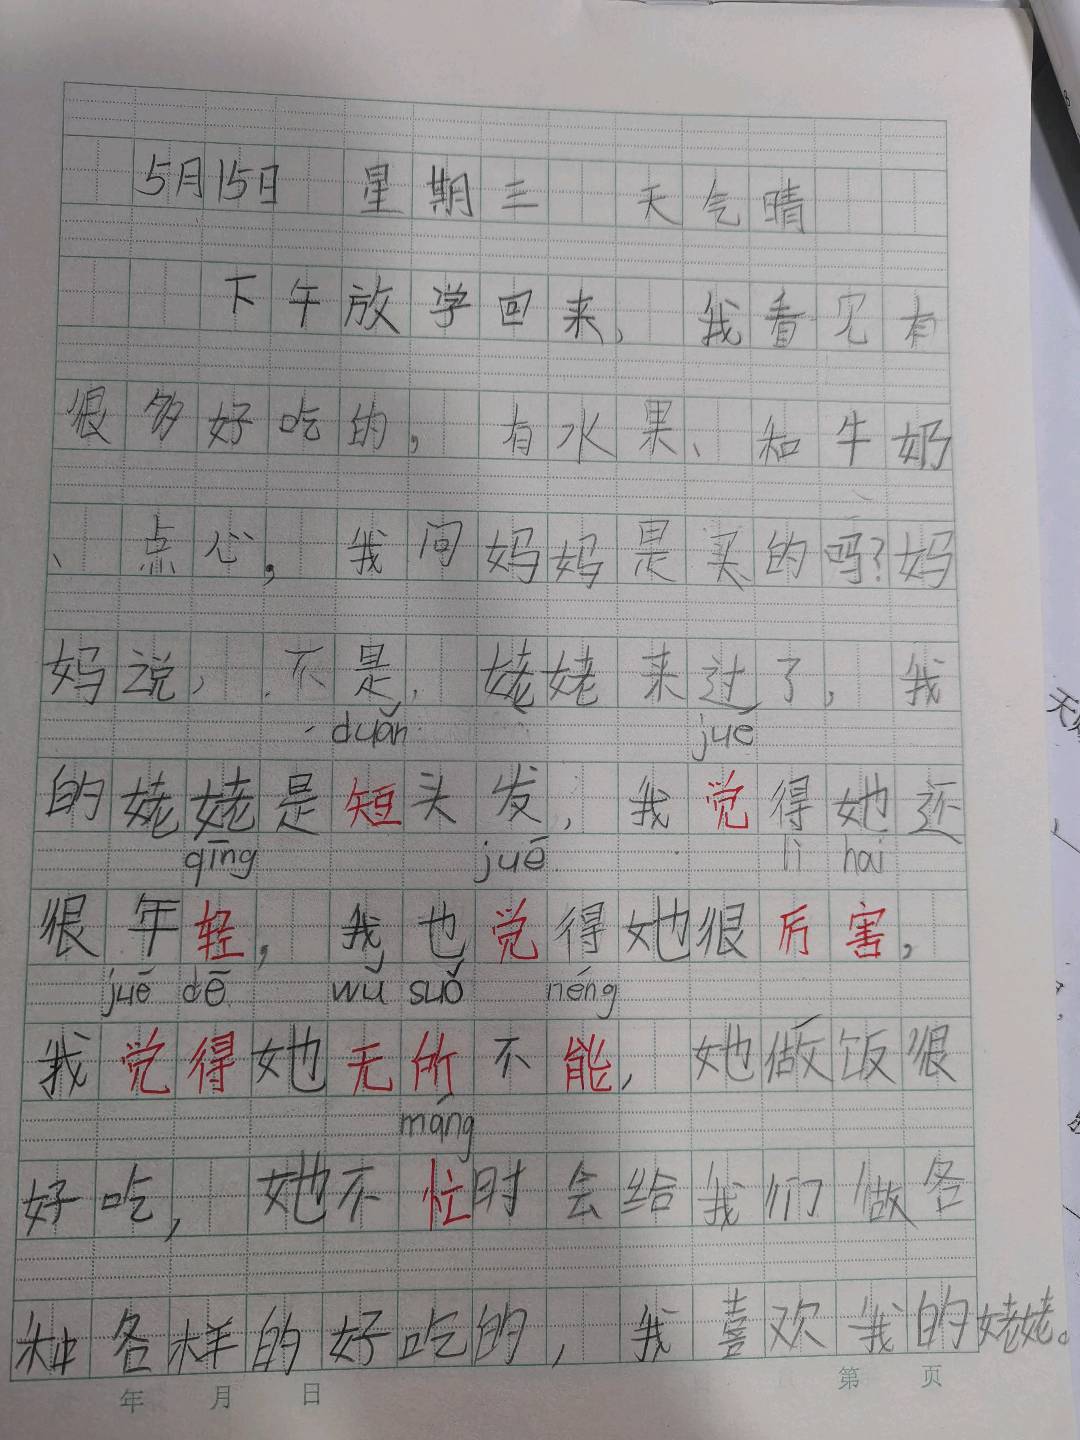 5月15日 星期三 天气晴
下午放学回来，我看见有
很多好吃的，有水果、和牛奶
、点心，我问妈妈是买的吗？妈
妈说，不是，姥姥来过了，我
duǎn jué
的姥姥是短头发，我觉得她还
qīng juē lì hai
很年轻，我也觉得她很厉害，
juē dē wú suǒ néng
我觉得她无所不能，她做饭很
máng
好吃，她不忙时会给我们做各
种各样的好吃的，我喜欢我的姥姥。
年 月 日 第 页